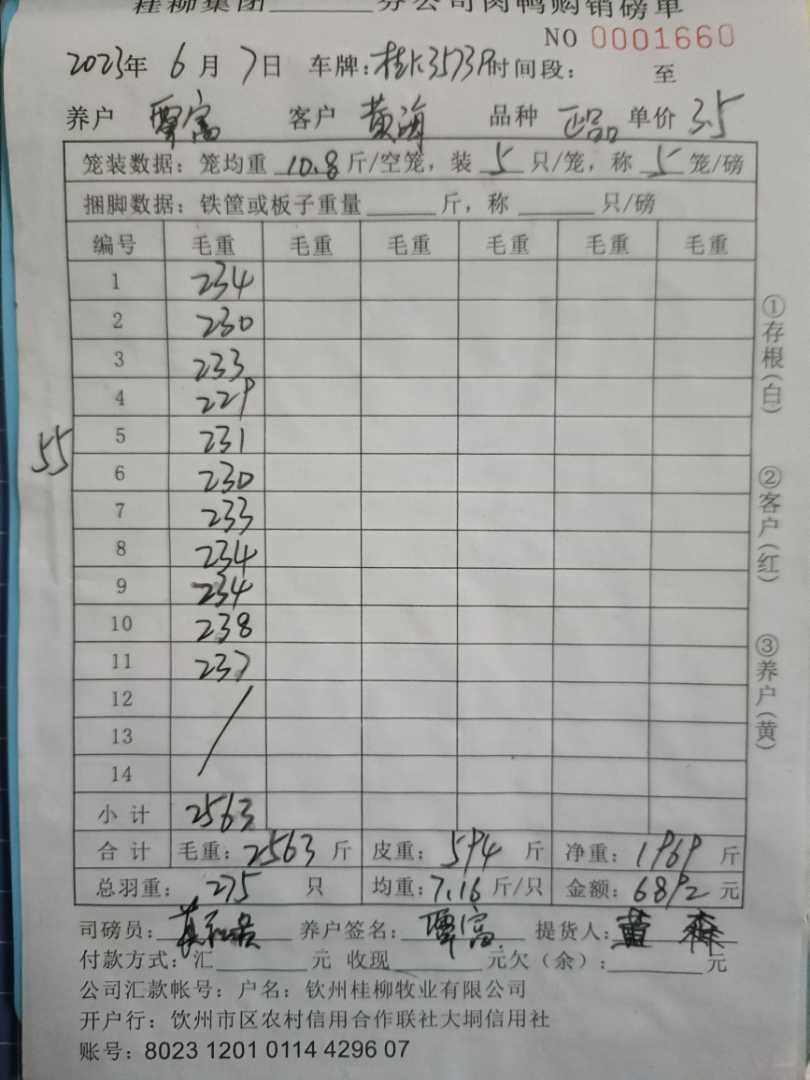 桂柳集团 分公司肉鸭购销磅单
NO 0001660
2023年 6月 7日 车牌: 时间段: 至
养户 覃富 客户 黄海 品种 正品 单价 3.5
笼装数据: 笼均重 10.8 斤/空笼, 装 5 只/笼, 称 5 笼/磅
捆脚数据: 铁筐或板子重量 斤, 称 只/磅
编号 毛重 毛重 毛重 毛重 毛重 毛重
1 234
2 230
3 233
4 229
5 231
55
6 230
7 233
8 234
9 234
10 238
11 237
12
13
14
小计 2563
合计 毛重: 2563 斤 皮重: 594 斤 净重: 1969 斤
总羽重: 275 只 均重: 7.16 斤/只 金额: 6892 元
司磅员: 养户签名: 覃富 提货人:
付款方式: 汇 元 收现 元欠(余): 元
公司汇款帐号: 户名: 钦州桂柳牧业有限公司
开户行: 钦州市区农村信用合作联社大垌信用社
账号: 8023 1201 0114 4296 07
①存根(白) ②客户(红) ③养户(黄)